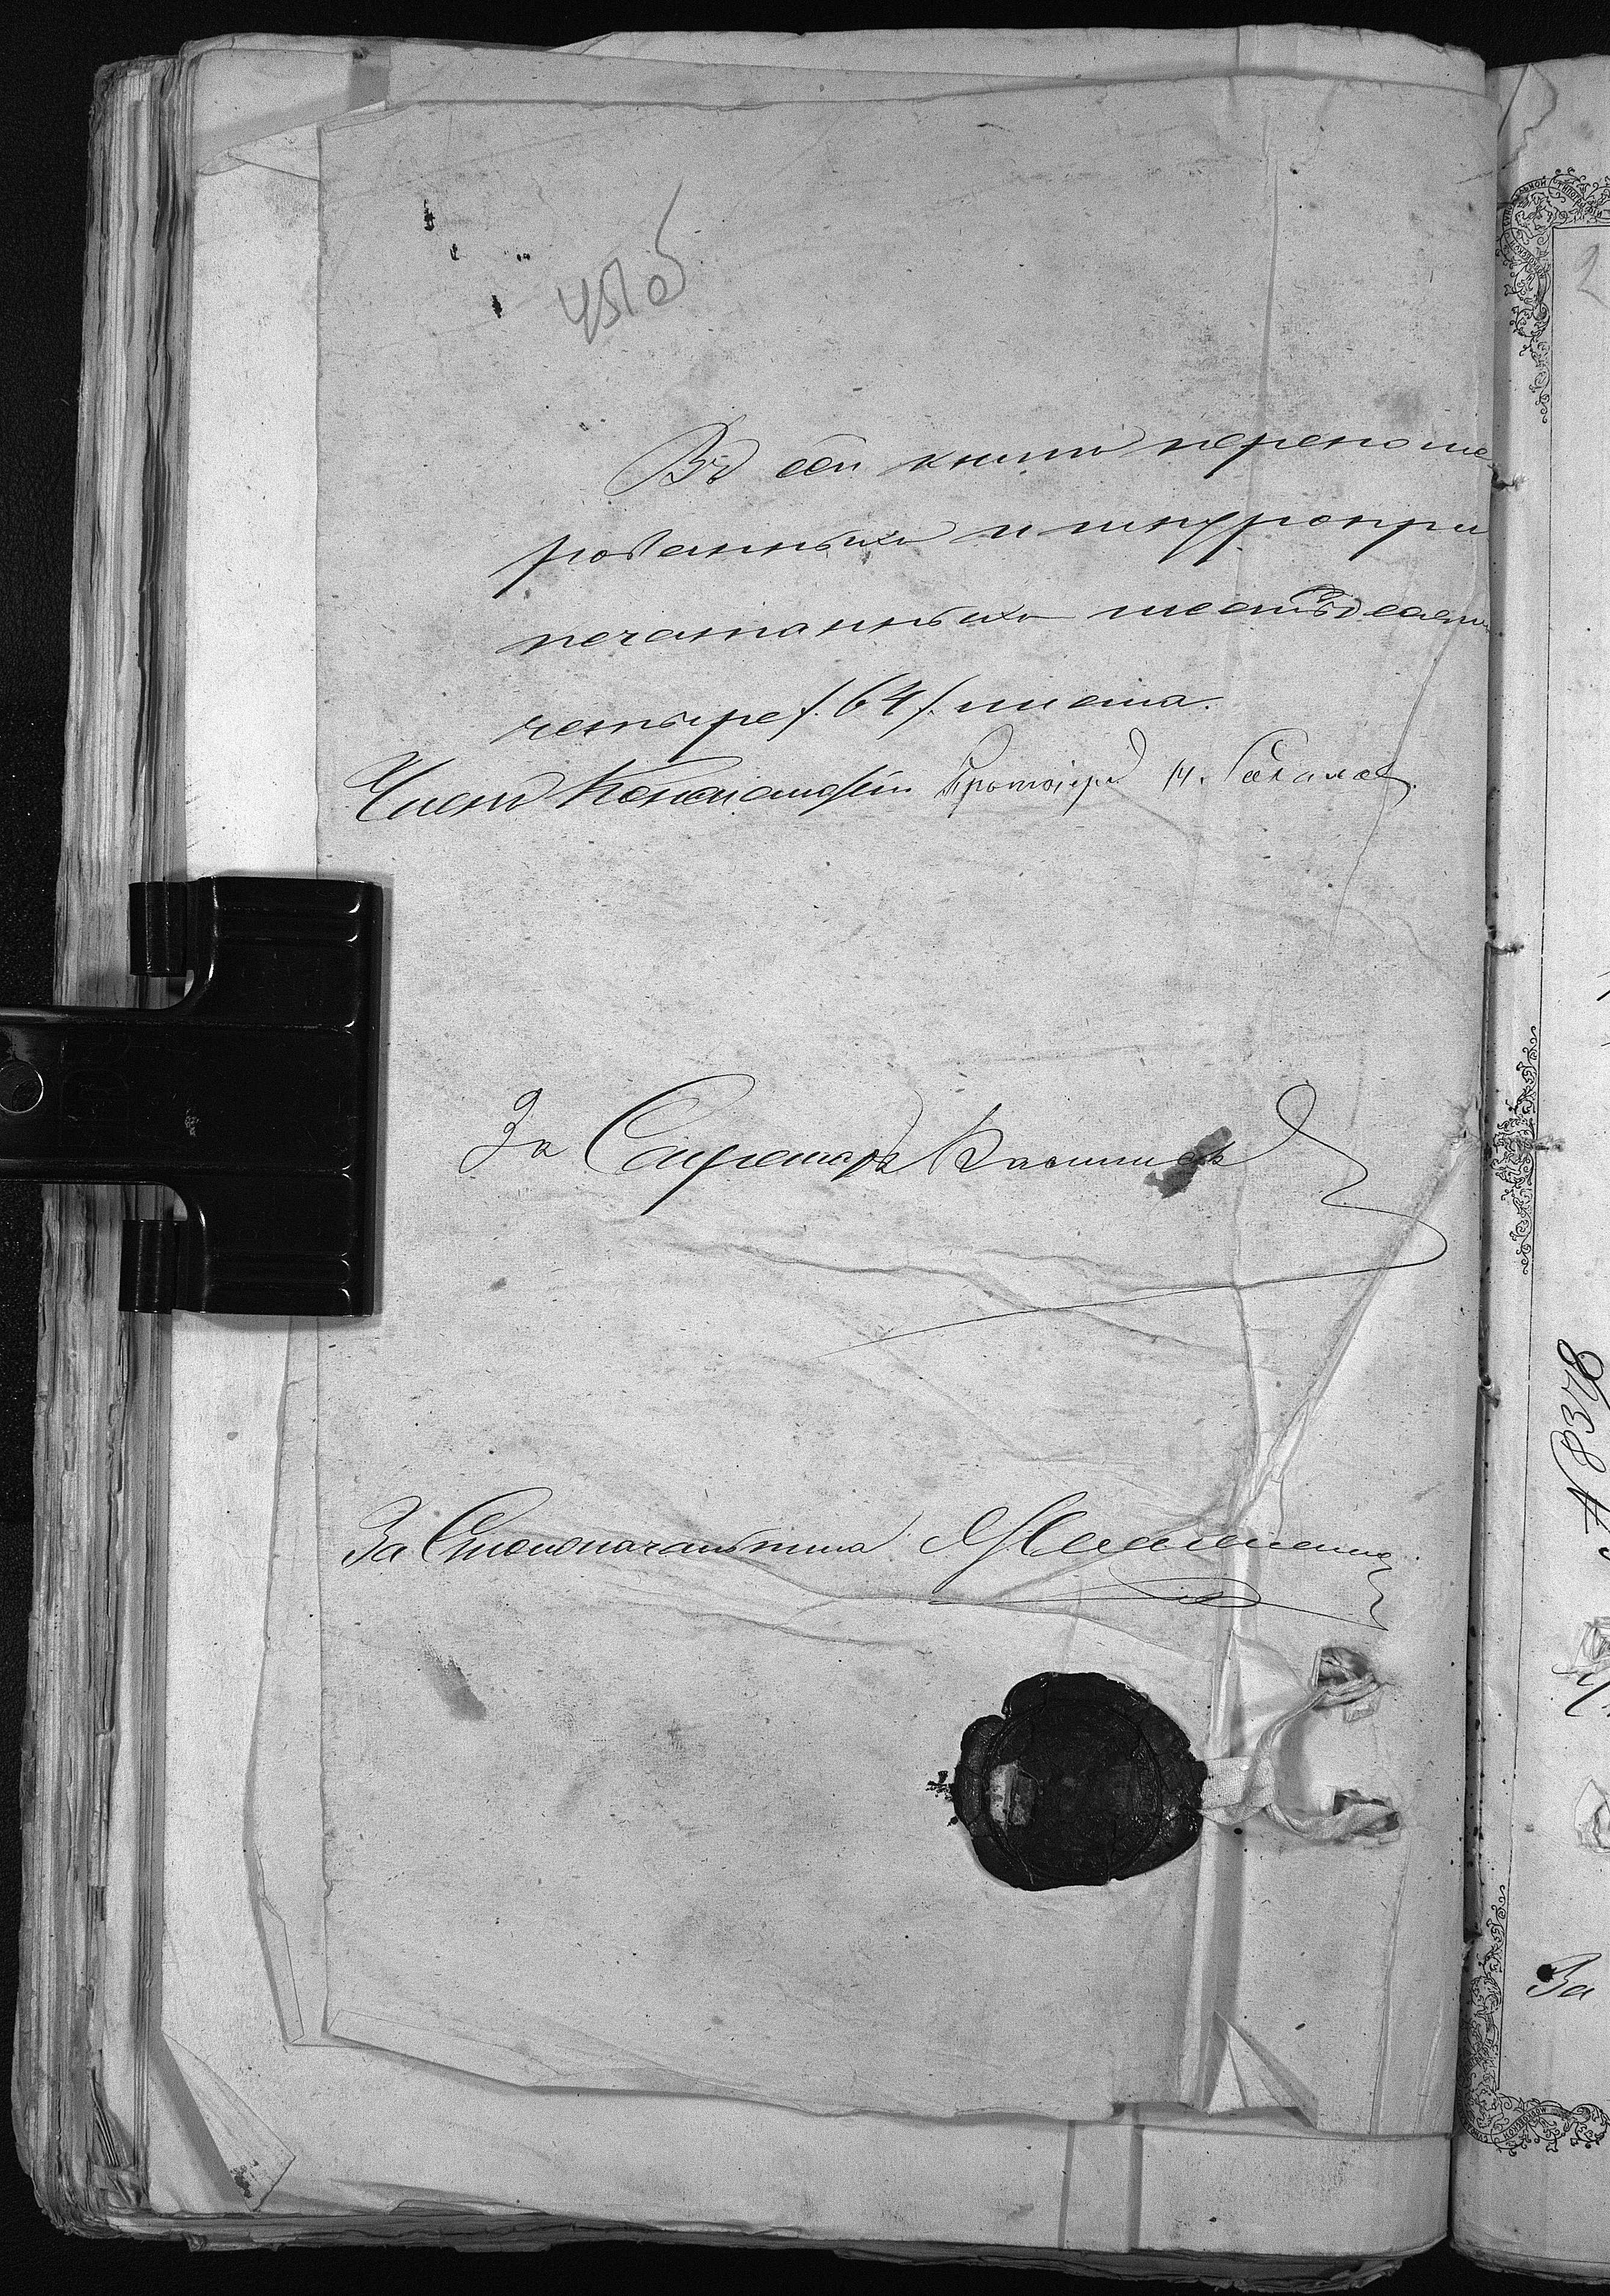 Въ сей книгѣ перенуме-
рованныхъ и шнуропри
печатанныхъ шестьдесятъ
четыре /:64/: листа.
Членъ Консисторіи Протоіерей
За Секретаря
За Столоначальника
2
№ 8378
За